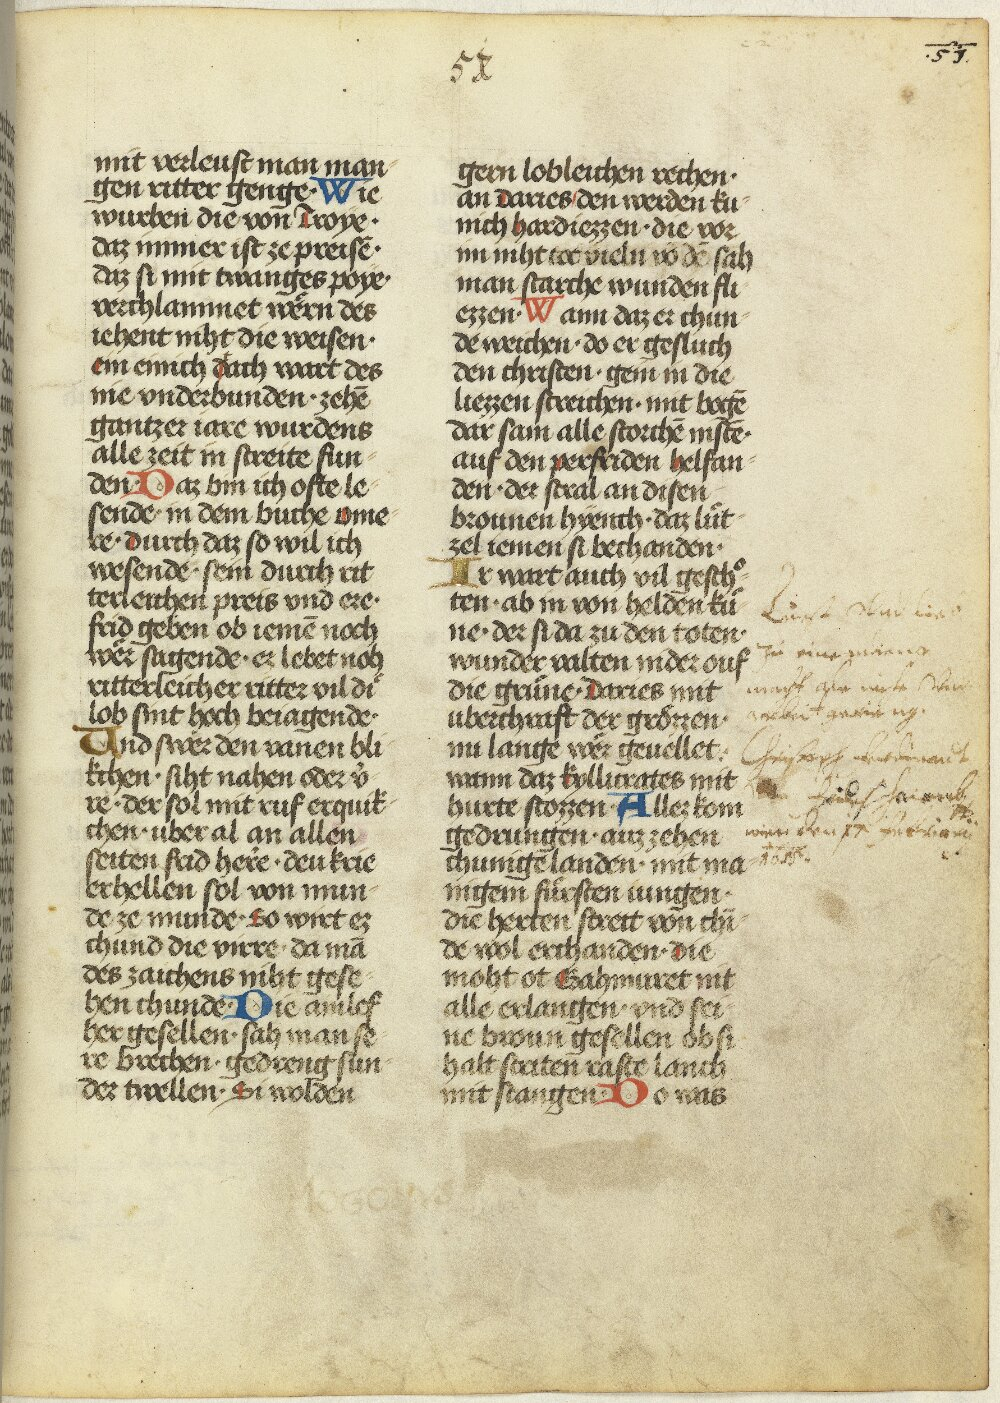 51
.51.
mit verleust man man-
gen ritter genge· Wie
wurben die von Troye·
daz immer ist ze preisē·
daz si mit twanges poye·
verchlammet wern des
iehent niht die weisen·
ein einich dach wart des
nie vnderbunden· zehē
gantzer iare wurdens
alle zeit in streite fun-
den· Daz bin ich ofte le-
sende· in dem buche ome-
re· durch daz so wil ich
wesende· sein durch rit
terleichen preis vnd ere·
frid geben ob iemē noch
wer sagende· er lebet noch
ritterleich er ritter vil di
lob sint hoch beiagende·
Vnd swer den vanen bli
kchen· siht nahen oder v̊-
re· der sol mit ruf erquik-
chen· uber al an allen
seiten frid here· deu krie
erhellen sol von mun-
de ze munde· So wirt ez
chund die virre· da mā
des zaichens niht gese-
hen chunde· Die amlof
her gesellen· sah man se-
re brechen· gedreng sun-
der twellen· Si wolden
gern lobleichen rechen·
an Daries den werden ku-
nich hardiezzen· die vor
im niht tot vieln vō dē sah
man starche wunden fli
ezzen· Wann daz er chun-
de weichen· do er gesluch
den christen· gein in die
liezzen streichen· mit bogē
dar sam alle storchē nistē·
auf den perfriden helfan-
den· der stral an disen
brounen hyench· daz lut-
zel iemen si bechanden·
Ir wart auch vil gescho-
ten· ab in von helden ku-
ne· der si da zu den toten·
wunder valten nider ouf
die grune· Daries mit
uberchraft der grozzen·
nu lange wer geuellet·
wann daz kyllicrates mit
hurte stozzen· Aller kom
gedrungen· auz zehen
chunigē landen· mit ma
nigem fursten iungen·
die herten streit von chi-
de wol erchanden· die
moht ot Gahmuret nit
alle erlangen· vnd sei-
ne broun gesellen ob si
halt straten raste lanch
mit stangen· Do was